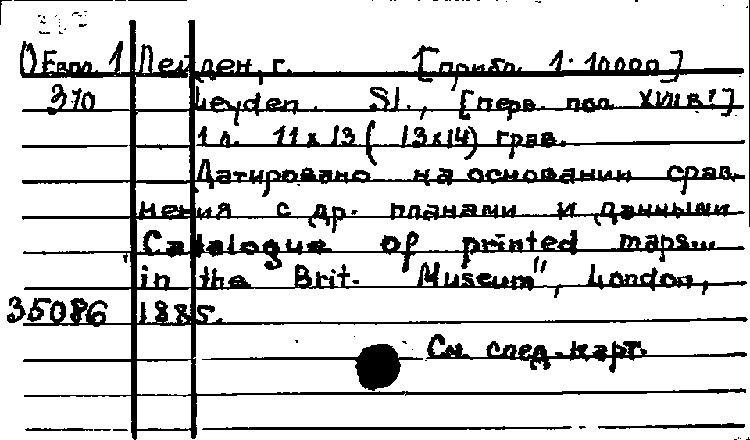 О Евро. 1 Лейден, г. [прибл. 1:10000]
370 Leyden. S.l., [перв. пол. XVIII в?]
1 л. 11 x 13 (13x14) грав.
Датировано на основании срав
нения с др. планами и данными
"Catalogue of printed maps...
in the Brit. Museum", London,
35086 1885.
См. след. карт.